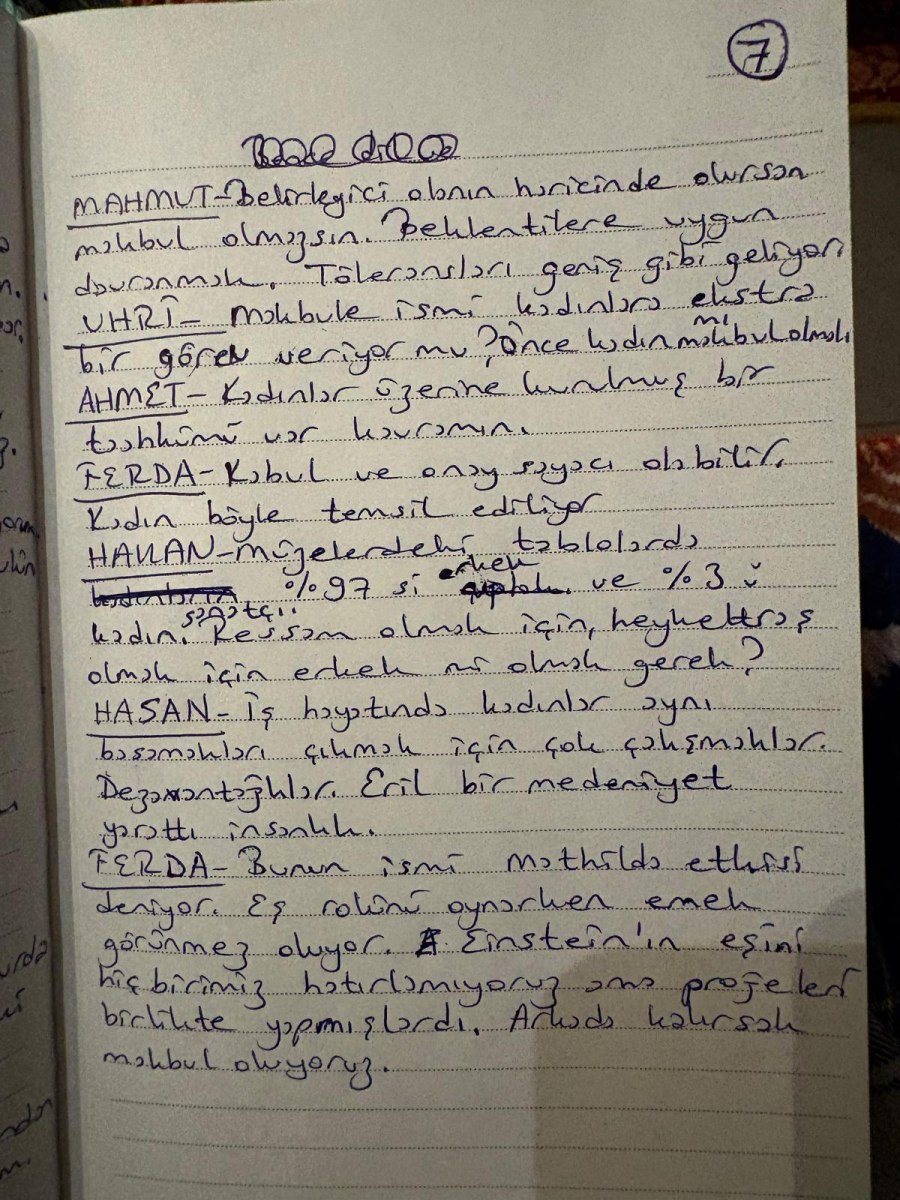 7
MAHMUT-Belirleyici olanın haricinde olursan
makbul olmazsın. Beklentilere uygun
davranmak. Toleransları geniş gibi geliyor.
VHRİ- Makbule ismi kadınlara ekstra
bir görev veriyor mu? Önce kadın mı makbul olmalı
AHMET- Kadınlar üzerine kurulmuş bir
tahkümü var kavramın.
FERDA- Kabul ve onay sayacı olabilir.
Kadın böyle temsil ediliyor
HAKAN-müzelerdeki tablolarda
%97 si erkek ve %3 ü
kadın sanatçı. Ressam olmak için, heykeltraş
olmak için erkek mi olmak gerek?
HASAN- İş hayatında kadınlar aynı
basamakları çıkmak için çok çalışmaklar.
Dezavantajlılar. Eril bir medeniyet
yarattı insanlık.
FERDA- Bunun ismi Mathilda etkisi
deniyor. Eş rolünü oynarken emek
görünmez oluyor. Einstein'ın eşini
hiçbirimiz hatırlamıyoruz ama projeleri
birlikte yapmışlardı. Arkada kalırsak
makbul oluyoruz.